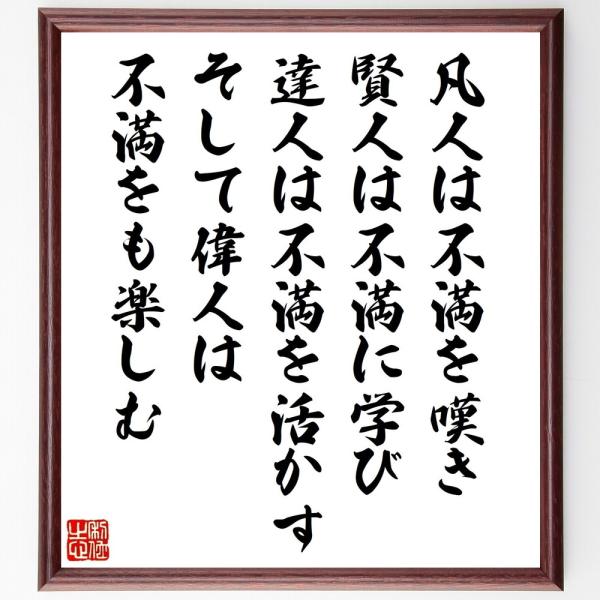 凡人は不満を嘆き
賢人は不満に学び
達人は不満を活かす
そして偉人は
不満をも楽しむ